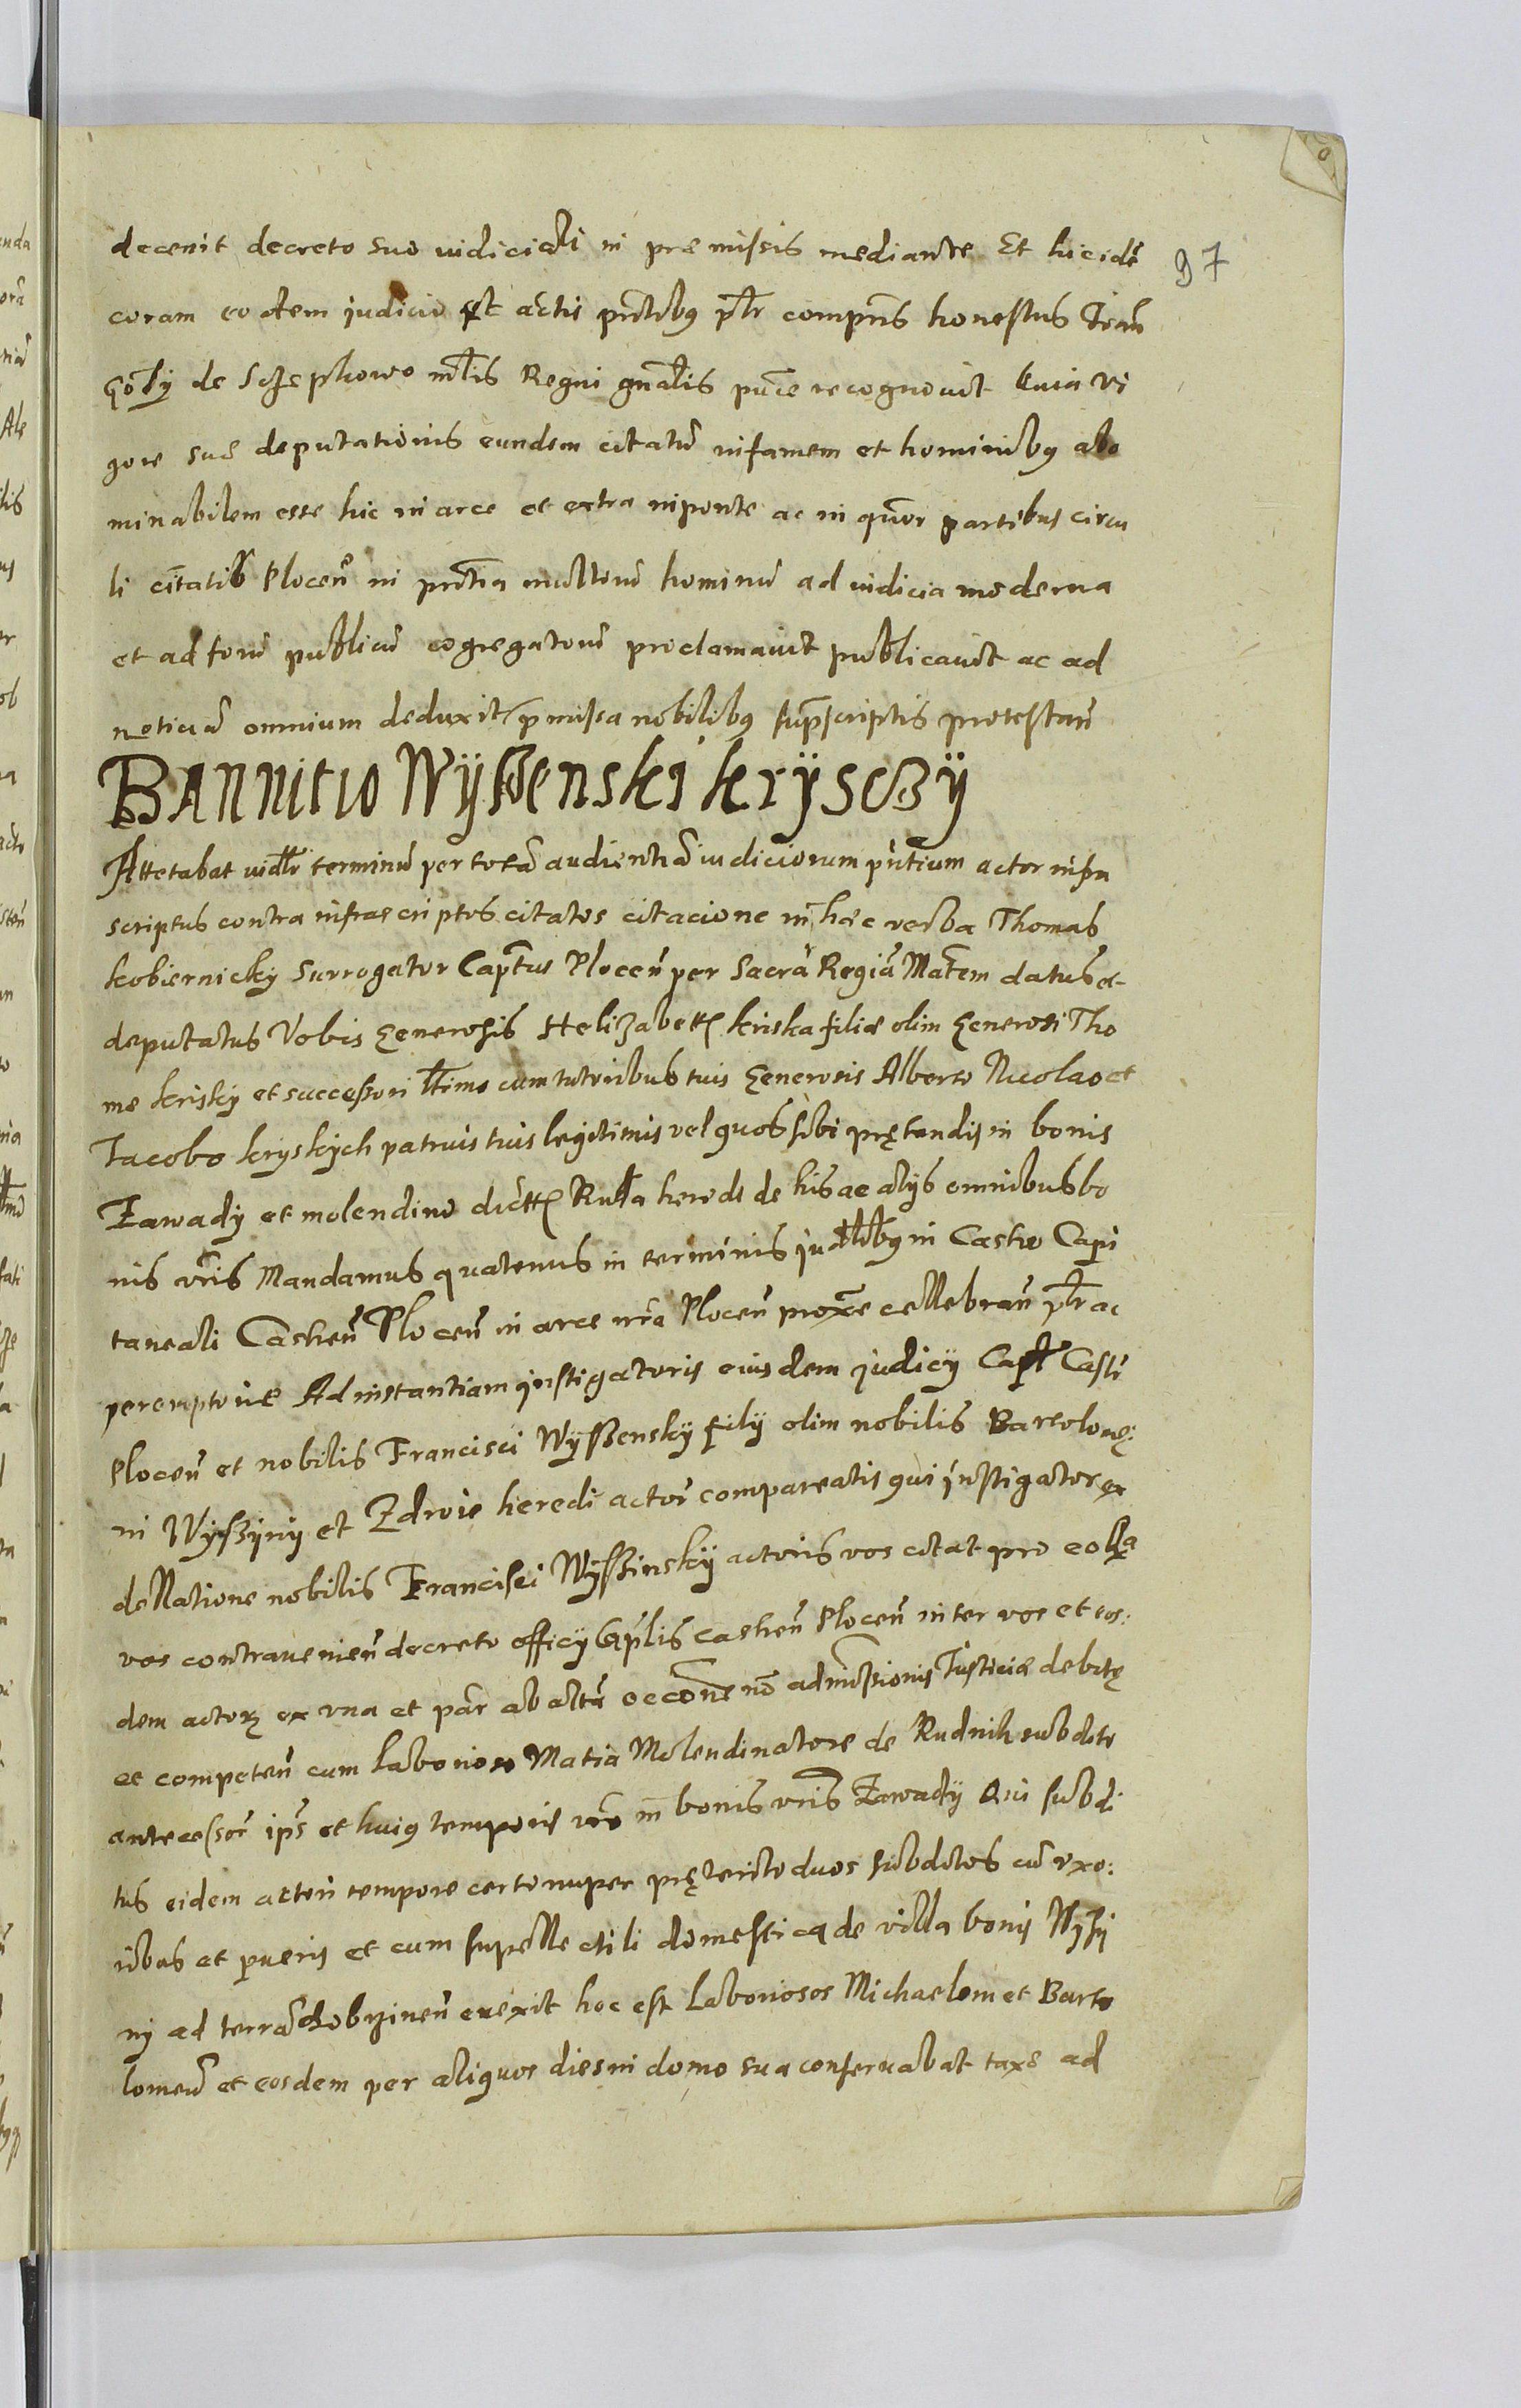 decernit decreto suo iudiciali in præmissis mediante Et hic idē
97
coram eodem judicio et actis pñtibꝰ ptr̄ compñs honestus Joañ
Goly de Sczephowo mtl̄is Regni gnãlis pñce recognouit Quia vi
gore suæ deputationis eundem citatū infamem et hominibꝰ abo
minabilem esse hic in arce et extra in ponte ac in quõr partibus circu
li citãtis Plocen̄ in pñtia multorū hominū ad iudicia moderna
et ad forū publicū cōgregatorū proclamauit publicauit ac ad
noticiā omnium deduxit p̄missa nobilibꝰ sup̄scriptis protestañ
BAnnitio Wÿssenski krÿsczÿ
Attētabat iudl̄r terminū per totā audientiā iudiciorum pñtium actor infra
scriptus contra infrascriptos citatos citacione in hæc verba Thomas
kobiernickÿ Surrogator Captus Plocen̄ per Sacrā Regiā Matēm datus et
deputatus Vobis Generosis Helizabett kriska filiæ olim Generosi Tho
me kriskÿ et successori ltīmo cum tutoribus tuis Generosis Alberto Nicolao et
Iacobo krÿskÿch patruis tuis legitimis vel quos sibi prętendis in bonis
Zawadÿ et molendino dictt Ruda heredē de his ac alÿs omnibus bo
nis vr̄is Mandamus quatenus in terminis judl̄ibꝰ in Castro Capi
taneali Castreñ Plocen̄ in arce nr̄a Plocen̄ prox̄e cellebrañ ptr̄ ac
peremptoriæ Ad instantiam jnstigatoris eiusdem judicÿ Capt Castr̄
Plocen̄ et nobilis Francisci Wÿssenskÿ filÿ olim nobilis Bartolomę:
ni Wÿssÿnÿ et Zdroie heredi actor̄ compareatis qui jnstigator ex
dellatione nobilis Francisci Wÿssinskÿ actoris vos citat pro eo Qa
vos contrauenieñ decreto officÿ Caplīs castreñ Plocen̄ inter vos et eos:
dem actorꝫ ex vna et par̄ ab altā occōne nō admissionis Justiciæ debitę
et competeñ cum laborioso Matia Molendinatore de Rudnik subdito
antecessor̄ ips̄ et huiꝰ temporis vr̄o in bonis vr̄is Zawadÿ Qui subdi
tus eidem actori tempore certo nuper pręterito duos subditos cū vxo:
ribus et pueris et cum supellectili domestica de villa bonis Wÿsÿ
nÿ ad terrā dobrzineñ euexit hoc est laboriosos Michaelem et Barto
lomeū et eosdem per aliquos dies in domo sua conseruabat taxæ ad